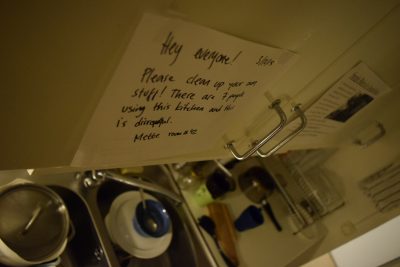 Hey everyone!
Please clean up your own
stuff! There are 7 people
using this kitchen and this
is disrespectful.
Mette room #42